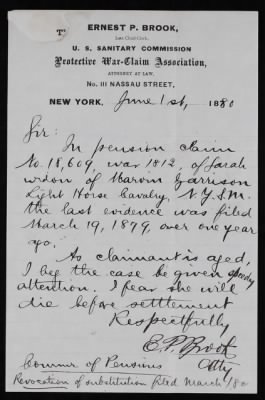 ERNEST P. BROOK,
Late Chief-Clerk,
U. S. SANITARY COMMISSION
Protective War-Claim Association,
ATTORNEY AT LAW,
No. 111 NASSAU STREET,
NEW YORK, June 1st, 1880
Sir:
In pension claim
No. 18,609, war 1812, of Sarah
widow of Marvin Garrison
Light Horse Cavalry, N.Y.S.M.
the last evidence was filed
March 19, 1879, over one year
ago.
As claimant is aged,
I beg the case be given speedy
attention. I fear she will
die before settlement
Respectfully
E. P. Brook
Atty
Commr of Pensions
Revocation of substitution filed March /80